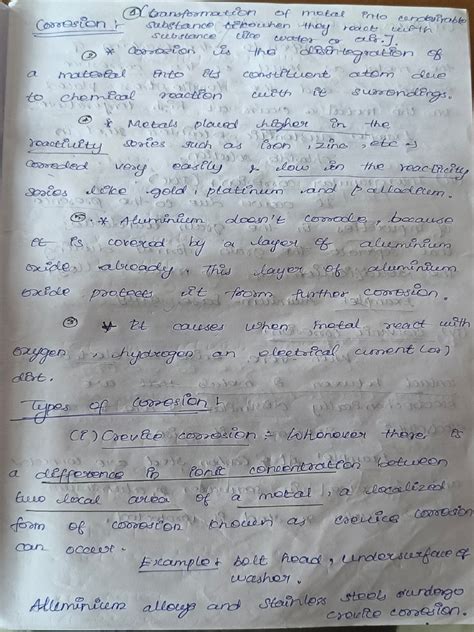 Corrosion : ① [transformation of metal into undesirable
substance when they react with
substance like water or air.]
② * Corrosion is the disintegration of
a material into its constituent atom due
to chemical reaction with it surrondings.
④ * Metals placed higher in the
reactivity series such as iron, zinc, etc →
corroded very easily & low in the reactivity
series like gold, platinum and palladium.
⑤. * Aluminium doesn't corrode, because
it is covered by a layer of aluminium
oxide already, this layer of aluminium
oxide protects it from further corrosion.
③ * It causes when metal react with
oxygen, hydrogen an electrical current (or)
dirt.
Types of corrosion :
(i) Crevice corrosion :- Whenever there is
a difference in ionic concentration between
two local area of a metal, a localized
form of corrosion known as crevice corrosion
can occur.
Example : bolt head, undersurface of
washer.
Alluminium alloys and stainless steels undergo
crevice corrosion.